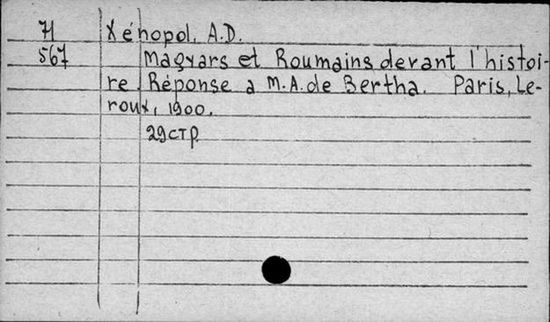 71 Xénopol, A.D.
567 Magyars et Roumains devant l'histoi-
re. Réponse a M.A. de Bertha. Paris, Le-
roux, 1900.
29стр.